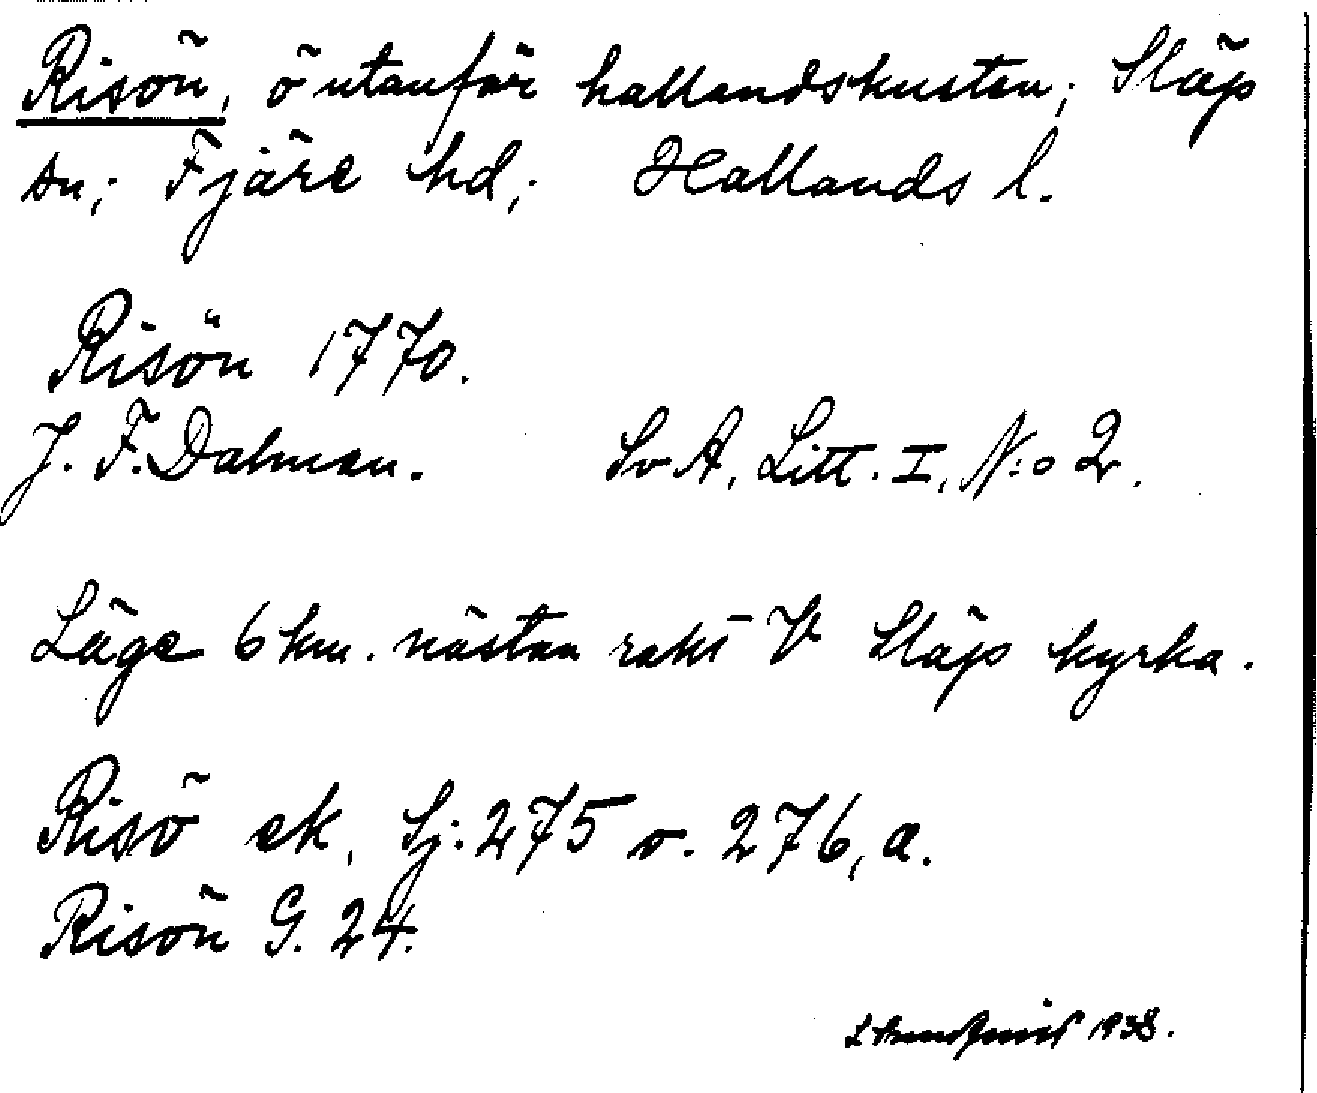 Risön, ö utanför hallandskusten; Släp
sn; Fjäre hd; Hallands l.
Risön 1770.
J. F. Dalman. SvA, Litt. I, N:o 2.
Läge 6 km. nästan rakt V Släp kyrka.
Risö ek, Sj: 275 o. 276, a.
Risön G. 24.
1938.